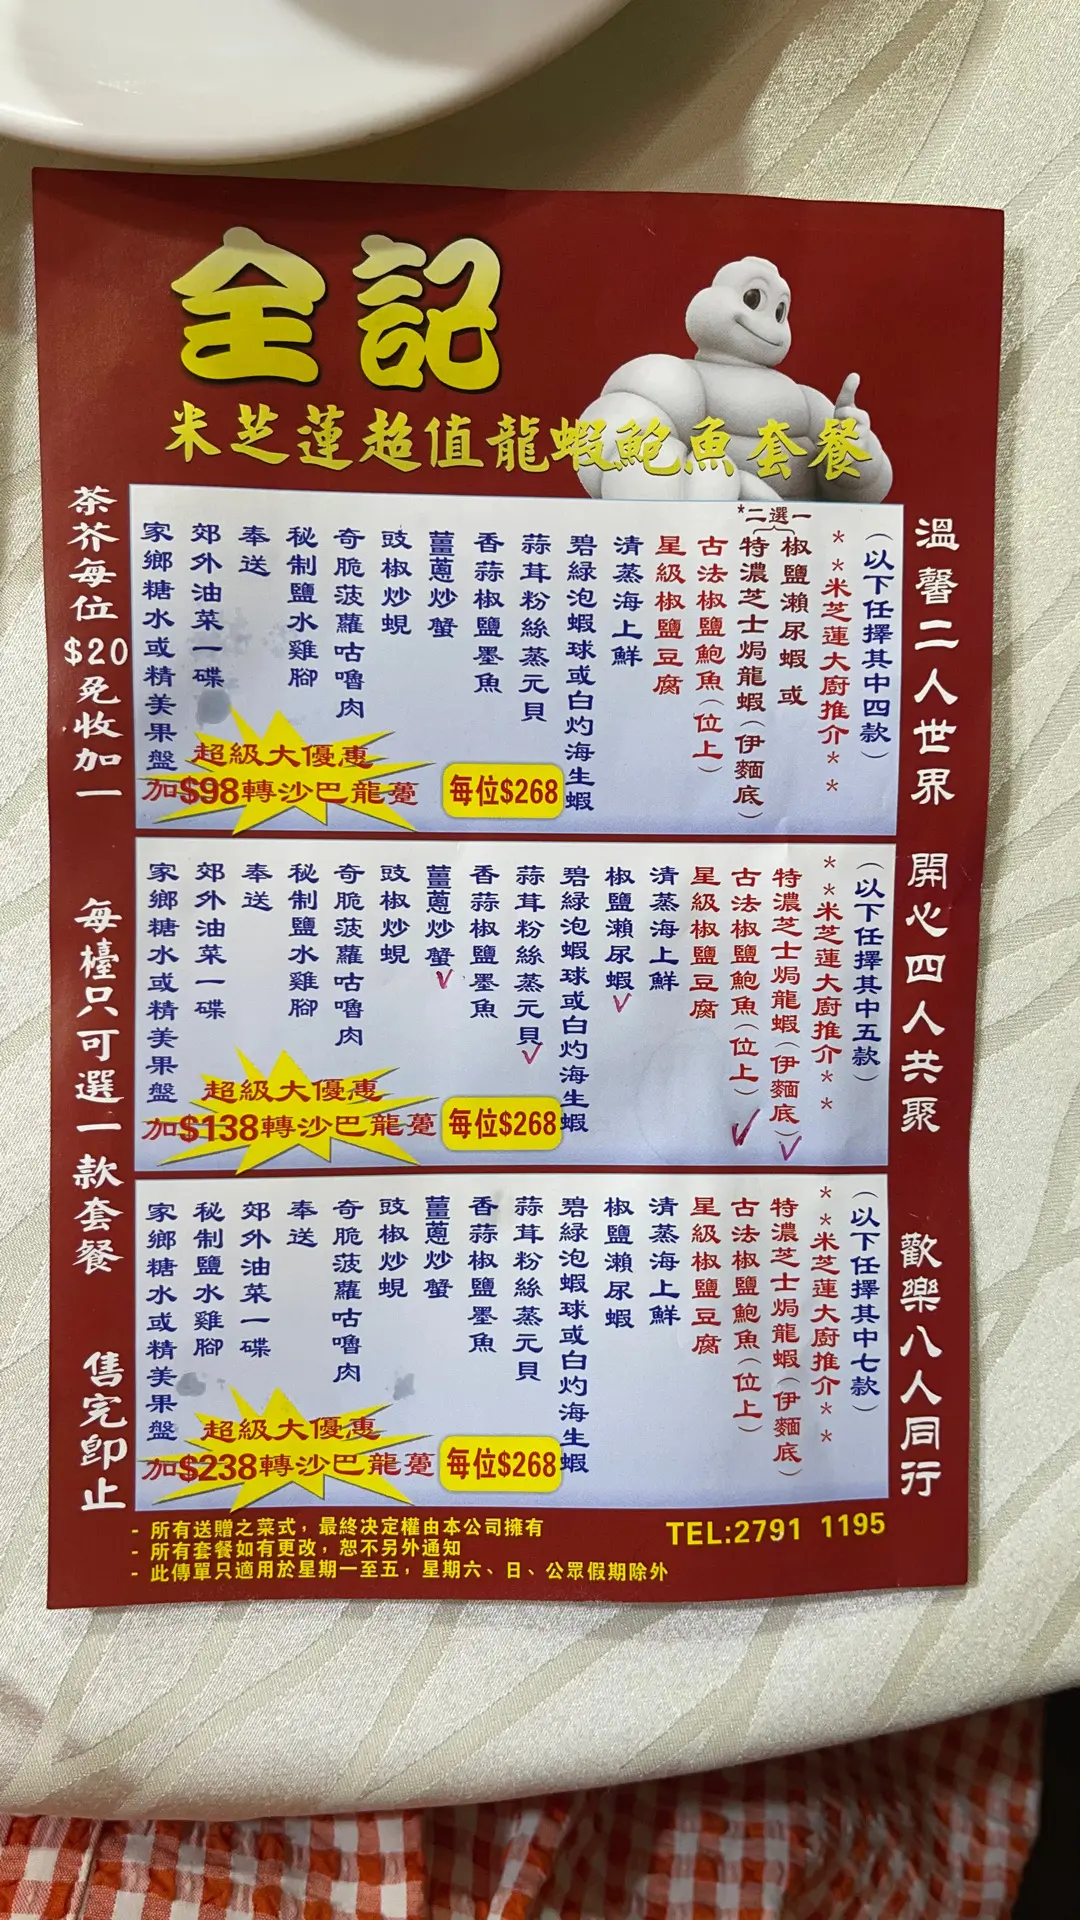 全記
米芝蓮超值龍蝦鮑魚套餐
溫馨二人世界
開心四人共聚
歡樂八人同行
（以下任擇其中四款）
**米芝蓮大廚推介**
*二選一
椒鹽瀨尿蝦 或
特濃芝士焗龍蝦（伊麵底）
古法椒鹽鮑魚（位上）
星級椒鹽豆腐
清蒸海上鮮
碧綠泡蝦球或白灼海生蝦
蒜茸粉絲蒸元貝
香蒜椒鹽墨魚
薑蔥炒蟹
豉椒炒蜆
奇脆菠蘿咕嚕肉
秘制鹽水雞腳
奉送
郊外油菜一碟
家鄉糖水或精美果盤
超級大優惠
加$98轉沙巴龍躉
每位$268
（以下任擇其中五款）
**米芝蓮大廚推介**
特濃芝士焗龍蝦（伊麵底）
古法椒鹽鮑魚（位上）
星級椒鹽豆腐
清蒸海上鮮
椒鹽瀨尿蝦
碧綠泡蝦球或白灼海生蝦
蒜茸粉絲蒸元貝
香蒜椒鹽墨魚
薑蔥炒蟹
豉椒炒蜆
奇脆菠蘿咕嚕肉
秘制鹽水雞腳
奉送
郊外油菜一碟
家鄉糖水或精美果盤
超級大優惠
加$138轉沙巴龍躉
每位$268
（以下任擇其中七款）
**米芝蓮大廚推介**
特濃芝士焗龍蝦（伊麵底）
古法椒鹽鮑魚（位上）
星級椒鹽豆腐
清蒸海上鮮
椒鹽瀨尿蝦
碧綠泡蝦球或白灼海生蝦
蒜茸粉絲蒸元貝
香蒜椒鹽墨魚
薑蔥炒蟹
豉椒炒蜆
奇脆菠蘿咕嚕肉
奉送
郊外油菜一碟
秘制鹽水雞腳
家鄉糖水或精美果盤
超級大優惠
加$238轉沙巴龍躉
每位$268
茶芥每位$20免收加一
每檯只可選一款套餐
售完即止
- 所有送贈之菜式，最終決定權由本公司擁有
- 所有套餐如有更改，恕不另外通知
- 此傳單只適用於星期一至五，星期六、日、公眾假期除外
TEL:2791 1195